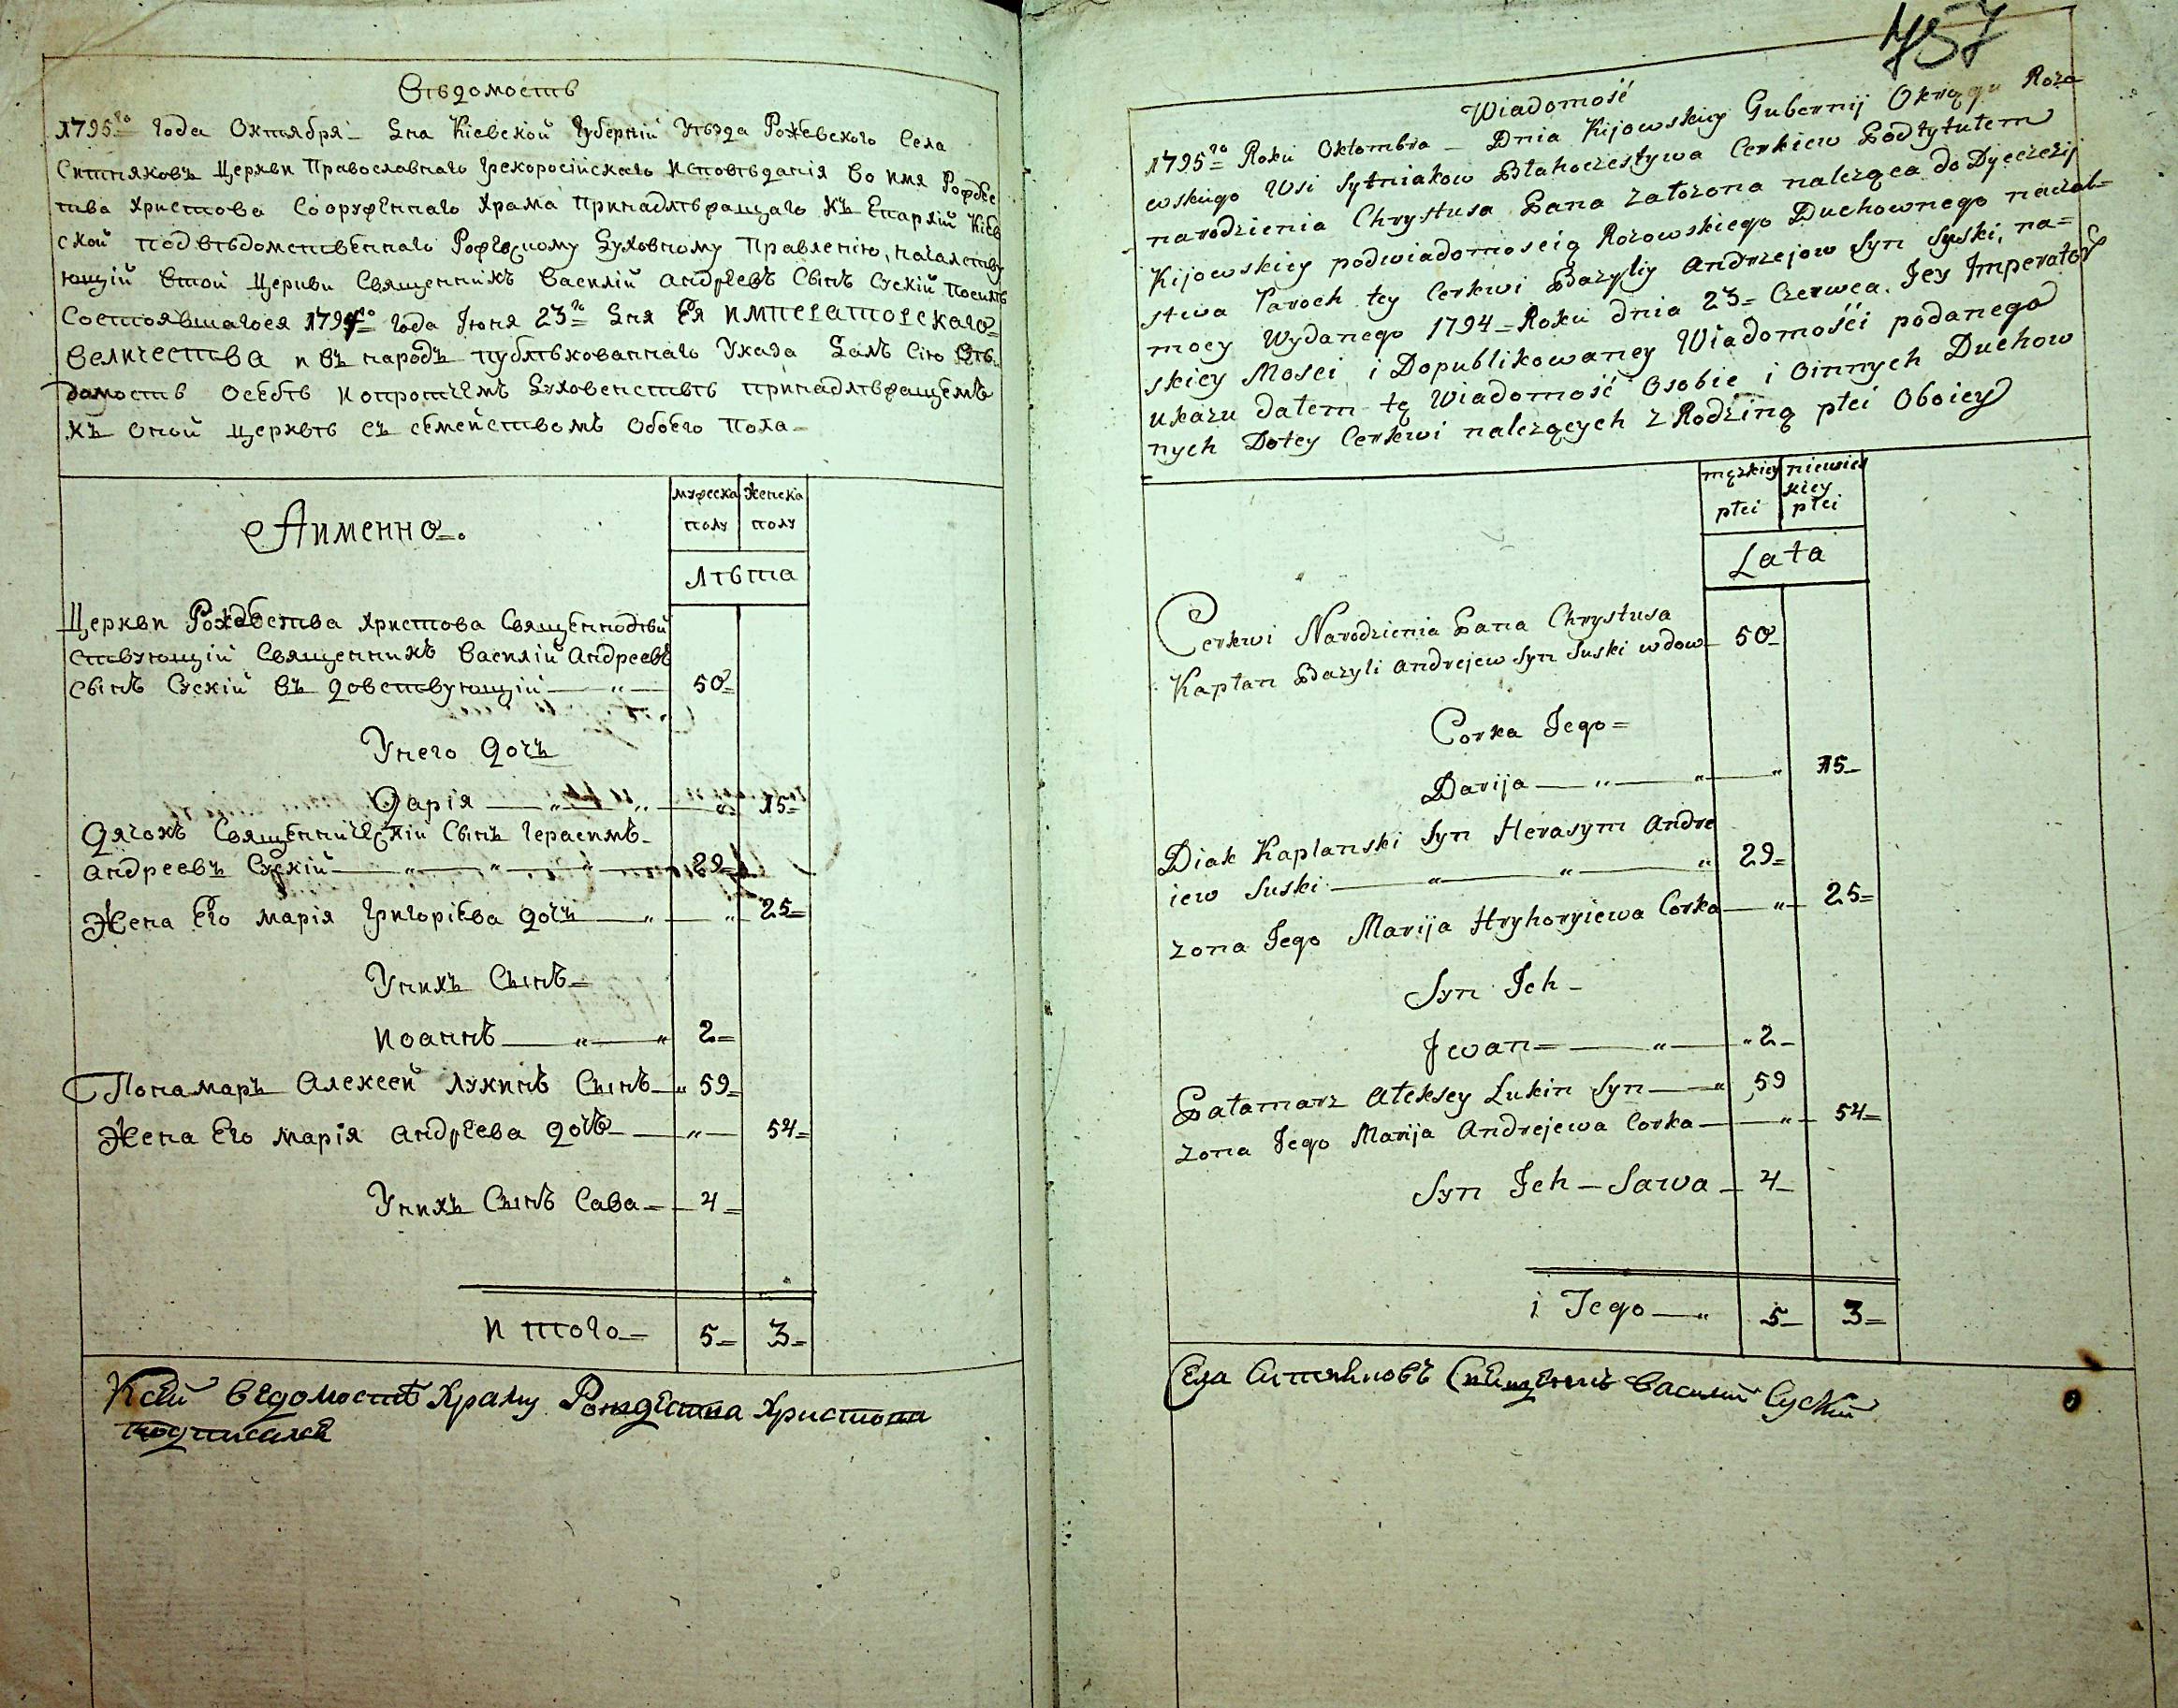 Вѣдомость
1795го Года Октября – Дня Кіевской Губерніи Уѣзда Рожевского Села
Ситняковъ Церкви Православнаго Грекоросійскаго Исповѣданія Во Имя Рождес
тва Христова Сооруженнаго Храма Принадлѣжащаго Къ Епархіи Кіев
ской подвѣдомственнаго Рожевскому Духовному Правленію, началству
ющій втой Церкви Священникъ Василій Андреевъ Сынъ Сускій посилѣ
Состоявшагося 1794го Года Іюня 23го Дня Ея ИМПЕРАТОРСКАГО
ВЕЛИЧЕСТВА и въ народъ публѣкованнаго Указа Далъ Сію Вѣ
домость Осебѣ Ипротчемъ Духовенствѣ принадлѣжащемъ
Къ Оной Церквѣ съ семействомъ Обоего Пола –
Аименно –.
мужеска полу
женска полу
Лѣта
Церкви Рождества Христова Священнодѣй
ствующій Священникъ Василій Андреевъ
Сынъ Сускій въ довствующій — „ — 50
Унего Дочь
Дарія — „ — „ — „ 15
Дячокъ Священническій Сынъ Герасимъ
Андреевъ Сускій — „ — „ — „ — 29
Жена Его Марія Григоріева дочь — „ — „ 25
Унихъ Сынъ
Иоаннъ — „ — „ 2
Понамарь Алексей Лукинъ Сынъ — „ 59
Жена Его Марія Андреева дочь — „ — 54
Унихъ Сынъ Сава — 4
И того — 5 3
Ксей ведомосте Храму Рождества Христова
подписался
757
Wiadomość
1795go Roku Oktombra – Dnia Kijowskiey Gubernij Okręgu Roża
ewskiego Wsi Sytniakow Błahoczestywa Cerkiew Podtytułem
narodzienia Chrystusa Pana założona należąca do Dyecezij
Kijowskiey podwiadomoscią Rożowskiego Duchownego naczal=
stwa Paroch tey Cerkwi Bazyliy Andrzejow Syn Syski, na=
mocy Wydanego 1794 – Roku dnia 23 = Czerwca. Jey Imperator
skiey Mosci i Dopublikowaney Wiadomośći podanego
ukazu dałem tę Wiadomość Osobie i Oinnych Duchow
nych Dotey Cerkwi należących z Rodziną płci Oboiey
męzkiey płci
niewies kiey płci
Lata
Cerkwi Narodzienia Pana Chrystusa
Kapłan Bazyli Andrejew Syn Suski wdow — 50
Corka Jego =
Darija — „ — „ — „ 15
Diak Kaplanski Syn Herasym Andre
iew Suski — „ — „ — „ 29
zona Jego Marija Hryhoryiewa Corka — „ — 25
Syn Jch –
Jwan = — „ — „ 2
Pałamarz Ałeksey Łukin Syn — „ 59
zona Jego Marija Andrejewa Corka — „ — 54
Syn Jch – Sawa – 4
i Jego — „ 5 3
Села Ситняковъ Священикъ Василий Суский